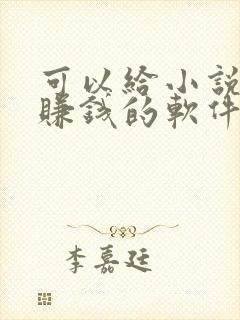 可以給小說
賺錢的軟件
李嘉廷